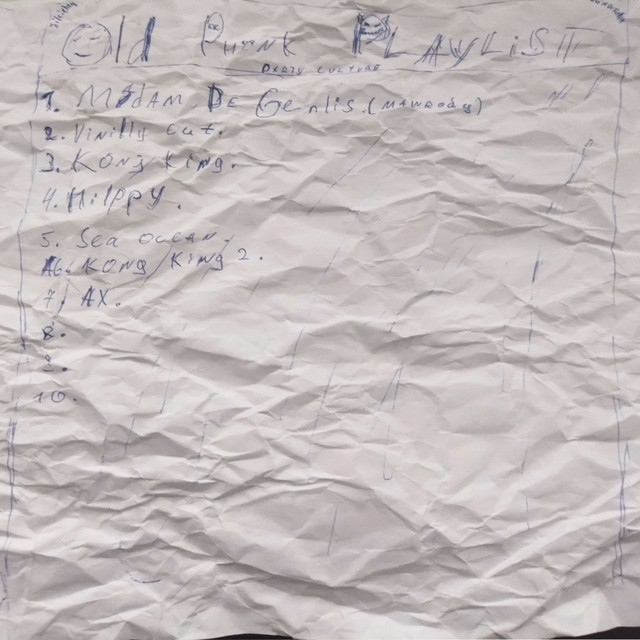 Old Punk PLAYLiST
CULTURE
1. MADAM DE Genlis.
2. Vinilly cut.
3. KONg King.
4. Hilppy.
5. Sea ocean,
6. KONg King 2.
7. AX.
8.
9.
10.